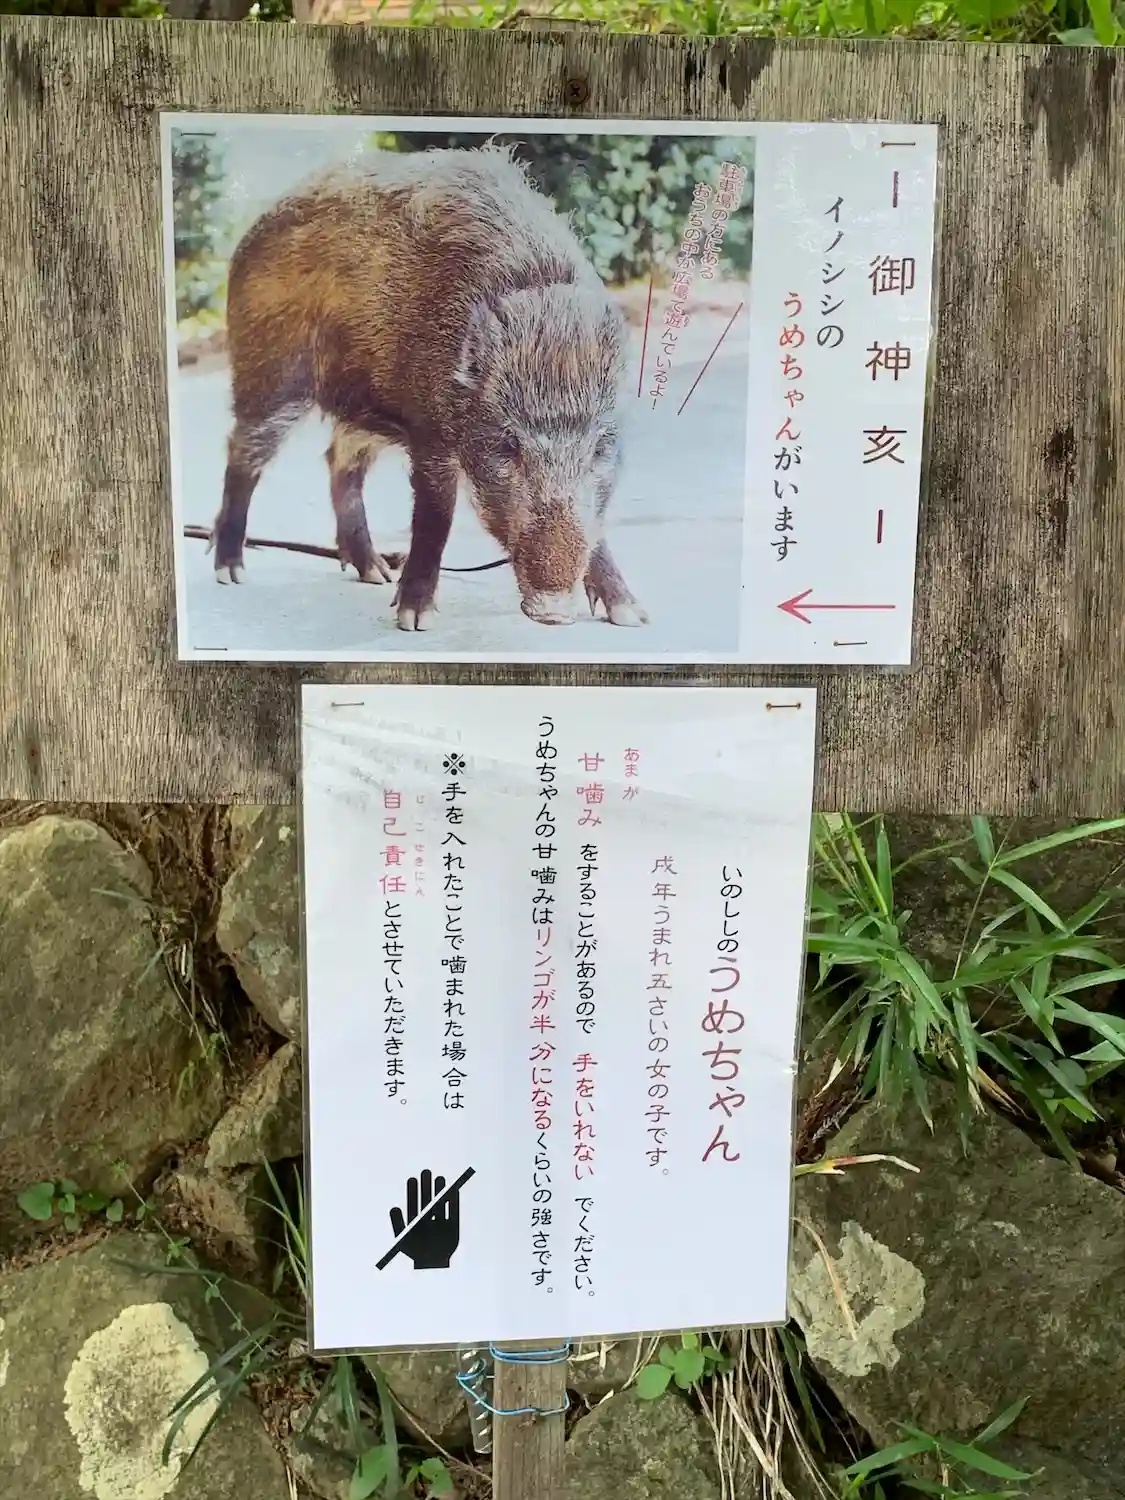 ー御神亥ー
イノシシの
うめちゃんがいます
駐車場の方にある
おうちの中か広場で遊んでいるよ!
いのししのうめちゃん
戌年うまれ五さいの女の子です。
あまが
甘噛み をすることがあるので 手をいれない でください。
うめちゃんの甘噛みはリンゴが半分になるくらいの強さです。
※手を入れたことで噛まれた場合は
じこせきにん
自己責任とさせていただきます。